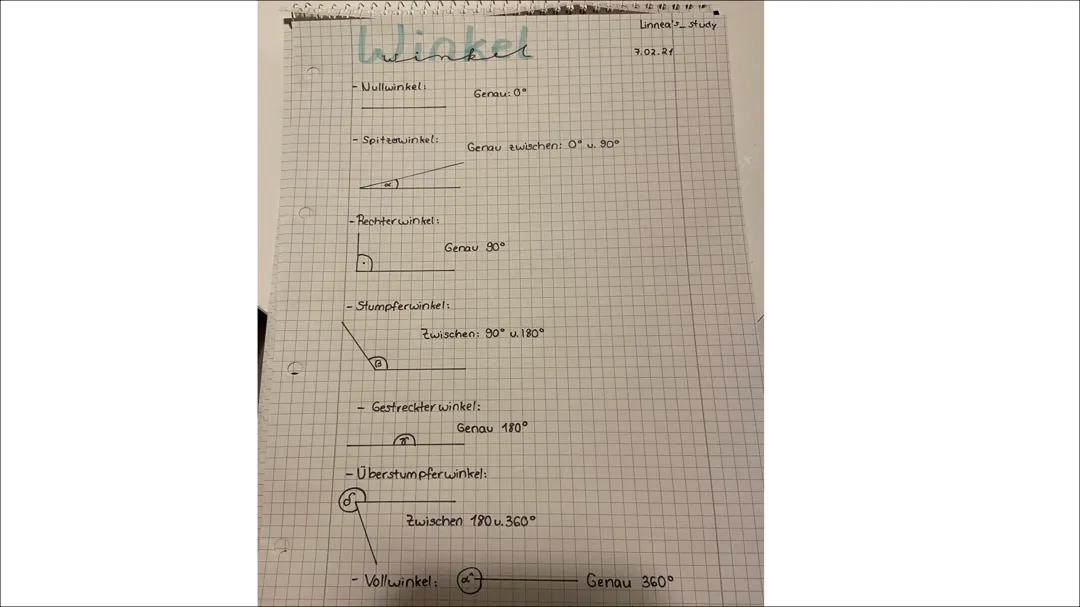 Linnea's_study
Winkel
winkel
7.02.21
- Nullwinkel:
Genau: 0°
- Spitzewinkel:
Genau zwischen: 0° u. 90°
α
- Rechterwinkel:
Genau 90°
- Stumpferwinkel:
Zwischen: 90° u. 180°
β
- Gestreckterwinkel:
Genau 180°
γ
- Überstumpferwinkel:
δ
Zwischen 180 u. 360°
- Vollwinkel: α Genau 360°